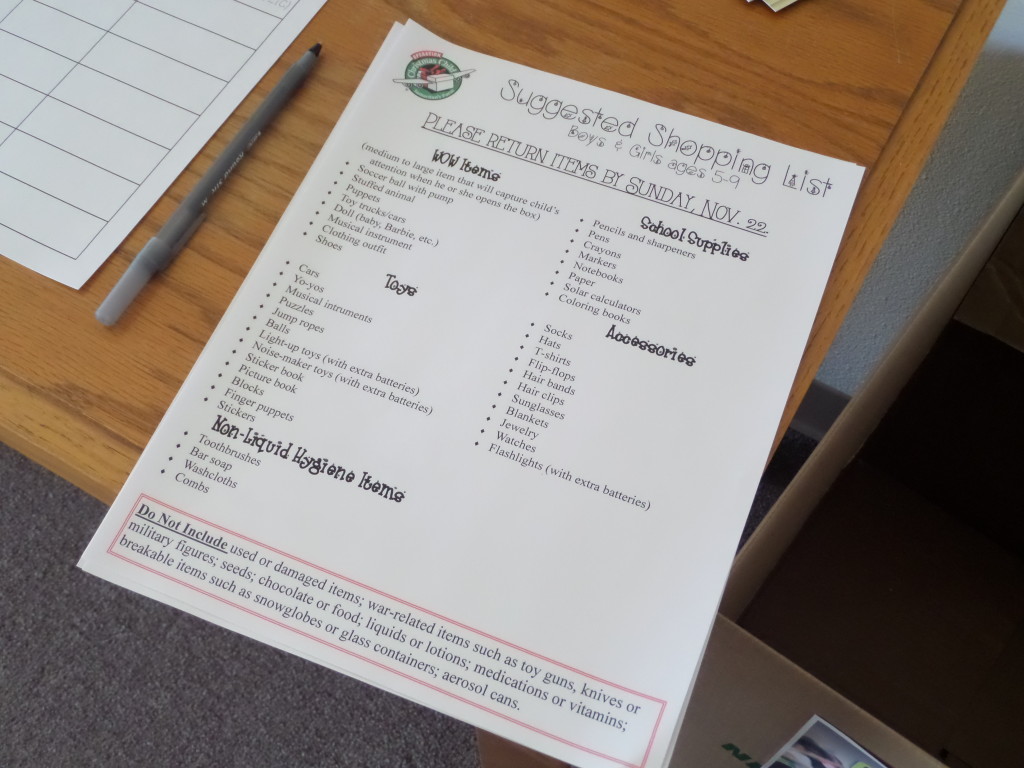 OPERATION
Christmas Child
Suggested Shopping List
Boys & Girls ages 5-9
PLEASE RETURN ITEMS BY SUNDAY, NOV. 22.
WOW Items
(medium to large item that will capture child's
attention when he or she opens the box)
• Soccer ball with pump
• Stuffed animal
• Puppets
• Toy trucks/cars
• Doll (baby, Barbie, etc.)
• Musical instrument
• Clothing outfit
• Shoes
Toys
• Cars
• Yo-yos
• Musical intruments
• Puzzles
• Jump ropes
• Balls
• Light-up toys (with extra batteries)
• Noise-maker toys (with extra batteries)
• Sticker book
• Picture book
• Blocks
• Finger puppets
• Stickers
Non-Liquid Hygiene Items
• Toothbrushes
• Bar soap
• Washcloths
• Combs
School Supplies
• Pencils and sharpeners
• Pens
• Crayons
• Markers
• Notebooks
• Paper
• Solar calculators
• Coloring books
Accessories
• Socks
• Hats
• T-shirts
• Flip-flops
• Hair bands
• Hair clips
• Sunglasses
• Blankets
• Jewelry
• Watches
• Flashlights (with extra batteries)
Do Not Include used or damaged items; war-related items such as toy guns, knives or
military figures; seeds; chocolate or food; liquids or lotions; medications or vitamins;
breakable items such as snowglobes or glass containers; aerosol cans.